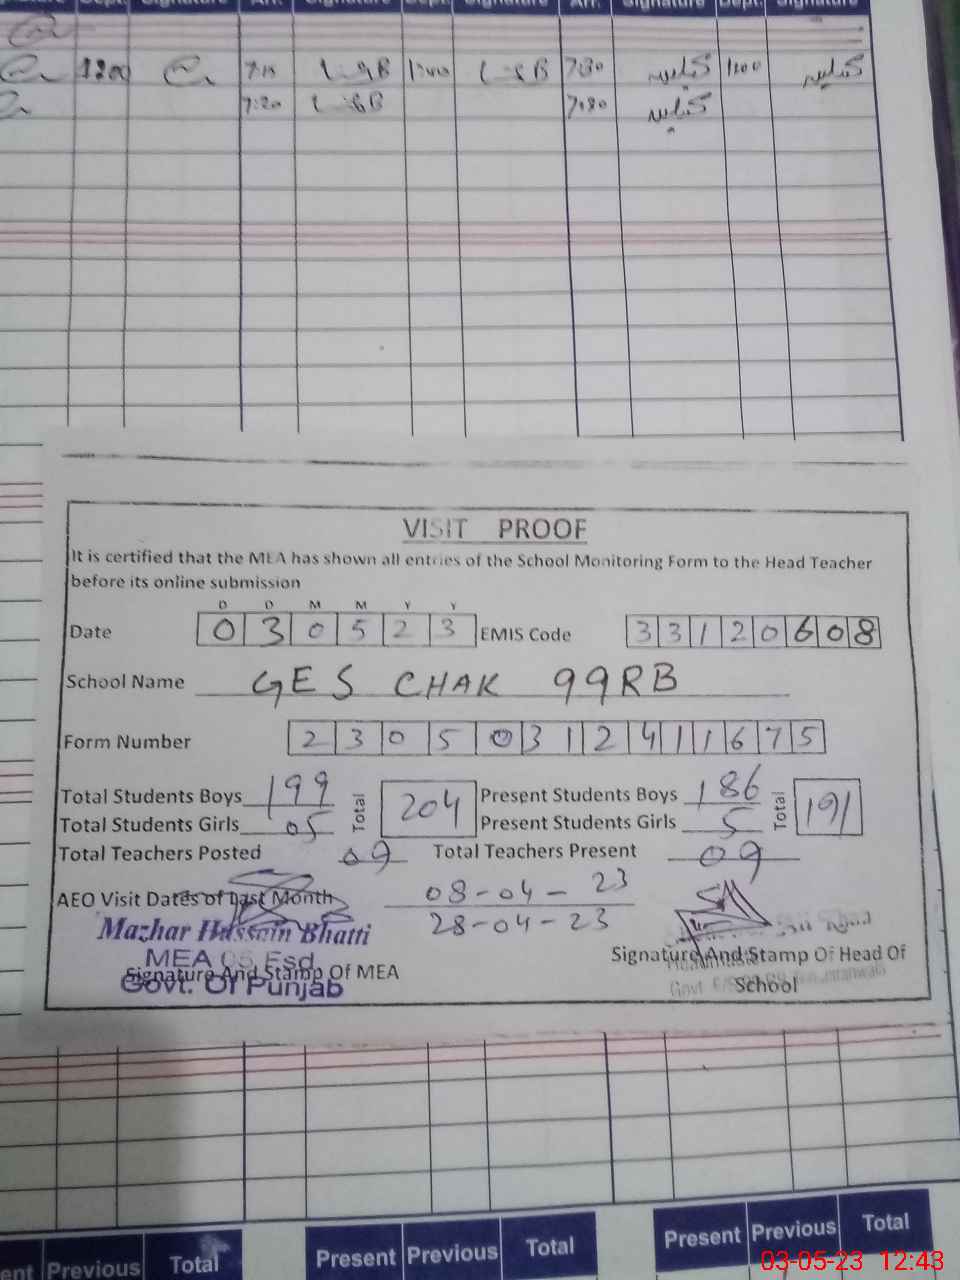 Arr. Signature Dept. Signature Arr. Signature Dept. Signature
1200 7:15 1200 7:30 1200
7:20 7:30
VISIT PROOF
It is certified that the MEA has shown all entries of the School Monitoring Form to the Head Teacher
before its online submission
D D M M Y Y
Date 0 3 0 5 2 3 EMIS Code 3 3 1 2 0 6 0 8
School Name GES CHAK 99RB
Form Number 2 3 0 5 0 3 1 2 4 1 1 6 7 5
Total Students Boys 199 Total 204 Present Students Boys 186 Total 191
Total Students Girls 05 Present Students Girls 5
Total Teachers Posted 09 Total Teachers Present 09
AEO Visit Dates of Last Month 08-04-23
28-04-23
Mazhar Hussain Bhatti
MEA 05 Fsd
Govt. Of Punjab
Signature And Stamp Of MEA
Signature And Stamp Of Head Of
School
Previous Total Present Previous Total Present Previous Total
03-05-23 12:43